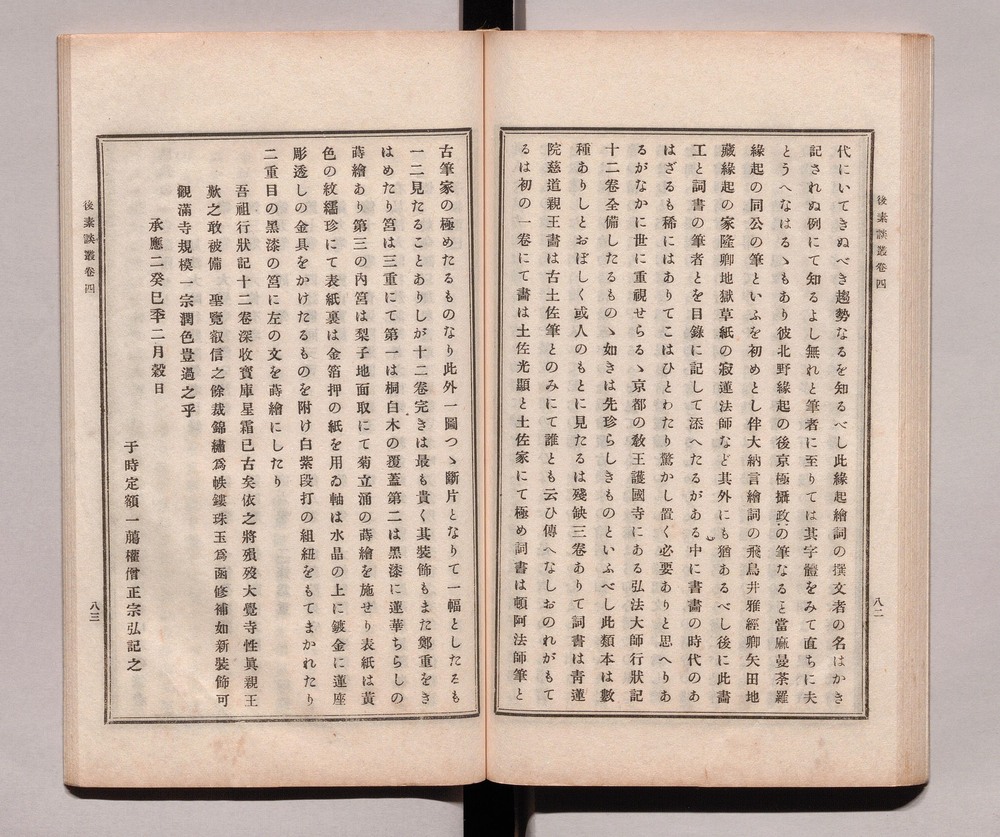 後素談叢卷四
八二
代にいてきぬべき趨勢なるを知るべし此緣起繪詞の撰文者の名はかき
記されぬ例にて知るよし無れと筆者に至りては其字體をみて直ちに夫
とうへなはるゝもあり彼北野緣起の後京極攝政の筆なると當麻曼荼羅
緣起の同公の筆といふを初めとし伴大納言繪詞の飛鳥井雅經卿矢田地
藏緣起の家隆卿地獄草紙の寂蓮法師など其外にも猶あるべし後に此畵
工と詞書の筆者とを目錄に記して添へたるがある中に書畵の時代のあ
はざるも稀にはありてこはひとわたり驚かし置く必要ありと思へりあ
るがなかに世に重視せらるゝ京都の敎王護國寺にある弘法大師行狀記
十二卷全備したるものゝ如きは先珍らしきものといふべし此類本は數
種ありしとおぼしく或人のもとに見たるは殘缺三卷ありて詞書は靑蓮
院慈道親王書は古土佐筆とのみにて誰とも云ひ傳へなしおのれがもて
るは初の一卷にて畵は土佐光顯と土佐家にて極め詞書は頓阿法師筆と
古筆家の極めたるものなり此外一圖つゝ斷片となりて一幅としたるも
一二見たることありしが十二卷完きは最も貴く其裝飾もまた鄭重をき
はめたり筥は三重にて第一は桐白木の覆蓋第二は黑漆に蓮華ちらしの
蒔繪あり第三の內筥は梨子地面取にて菊立涌の蒔繪を施せり表紙は黃
色の紋繻珍にて表紙裏は金箔押の紙を用ゐ軸は水晶の上に鍍金に蓮座
彫透しの金具をかけたるものを附け白紫段打の組紐をもてまかれたり
二重目の黑漆の筥に左の文を蒔繪にしたり
吾祖行狀記十二卷深收寳庫星霜已古矣依之將損歿大覺寺性眞親王
歎之敢被備　聖覽叡信之餘裁錦繡爲帙鏤珠玉爲函修補如新裝飾可
觀滿寺規模一宗潤色豈過之乎
承應二癸巳季二月穀日
于時定額一﨟權僧正宗弘記之
後素談叢卷四
八三